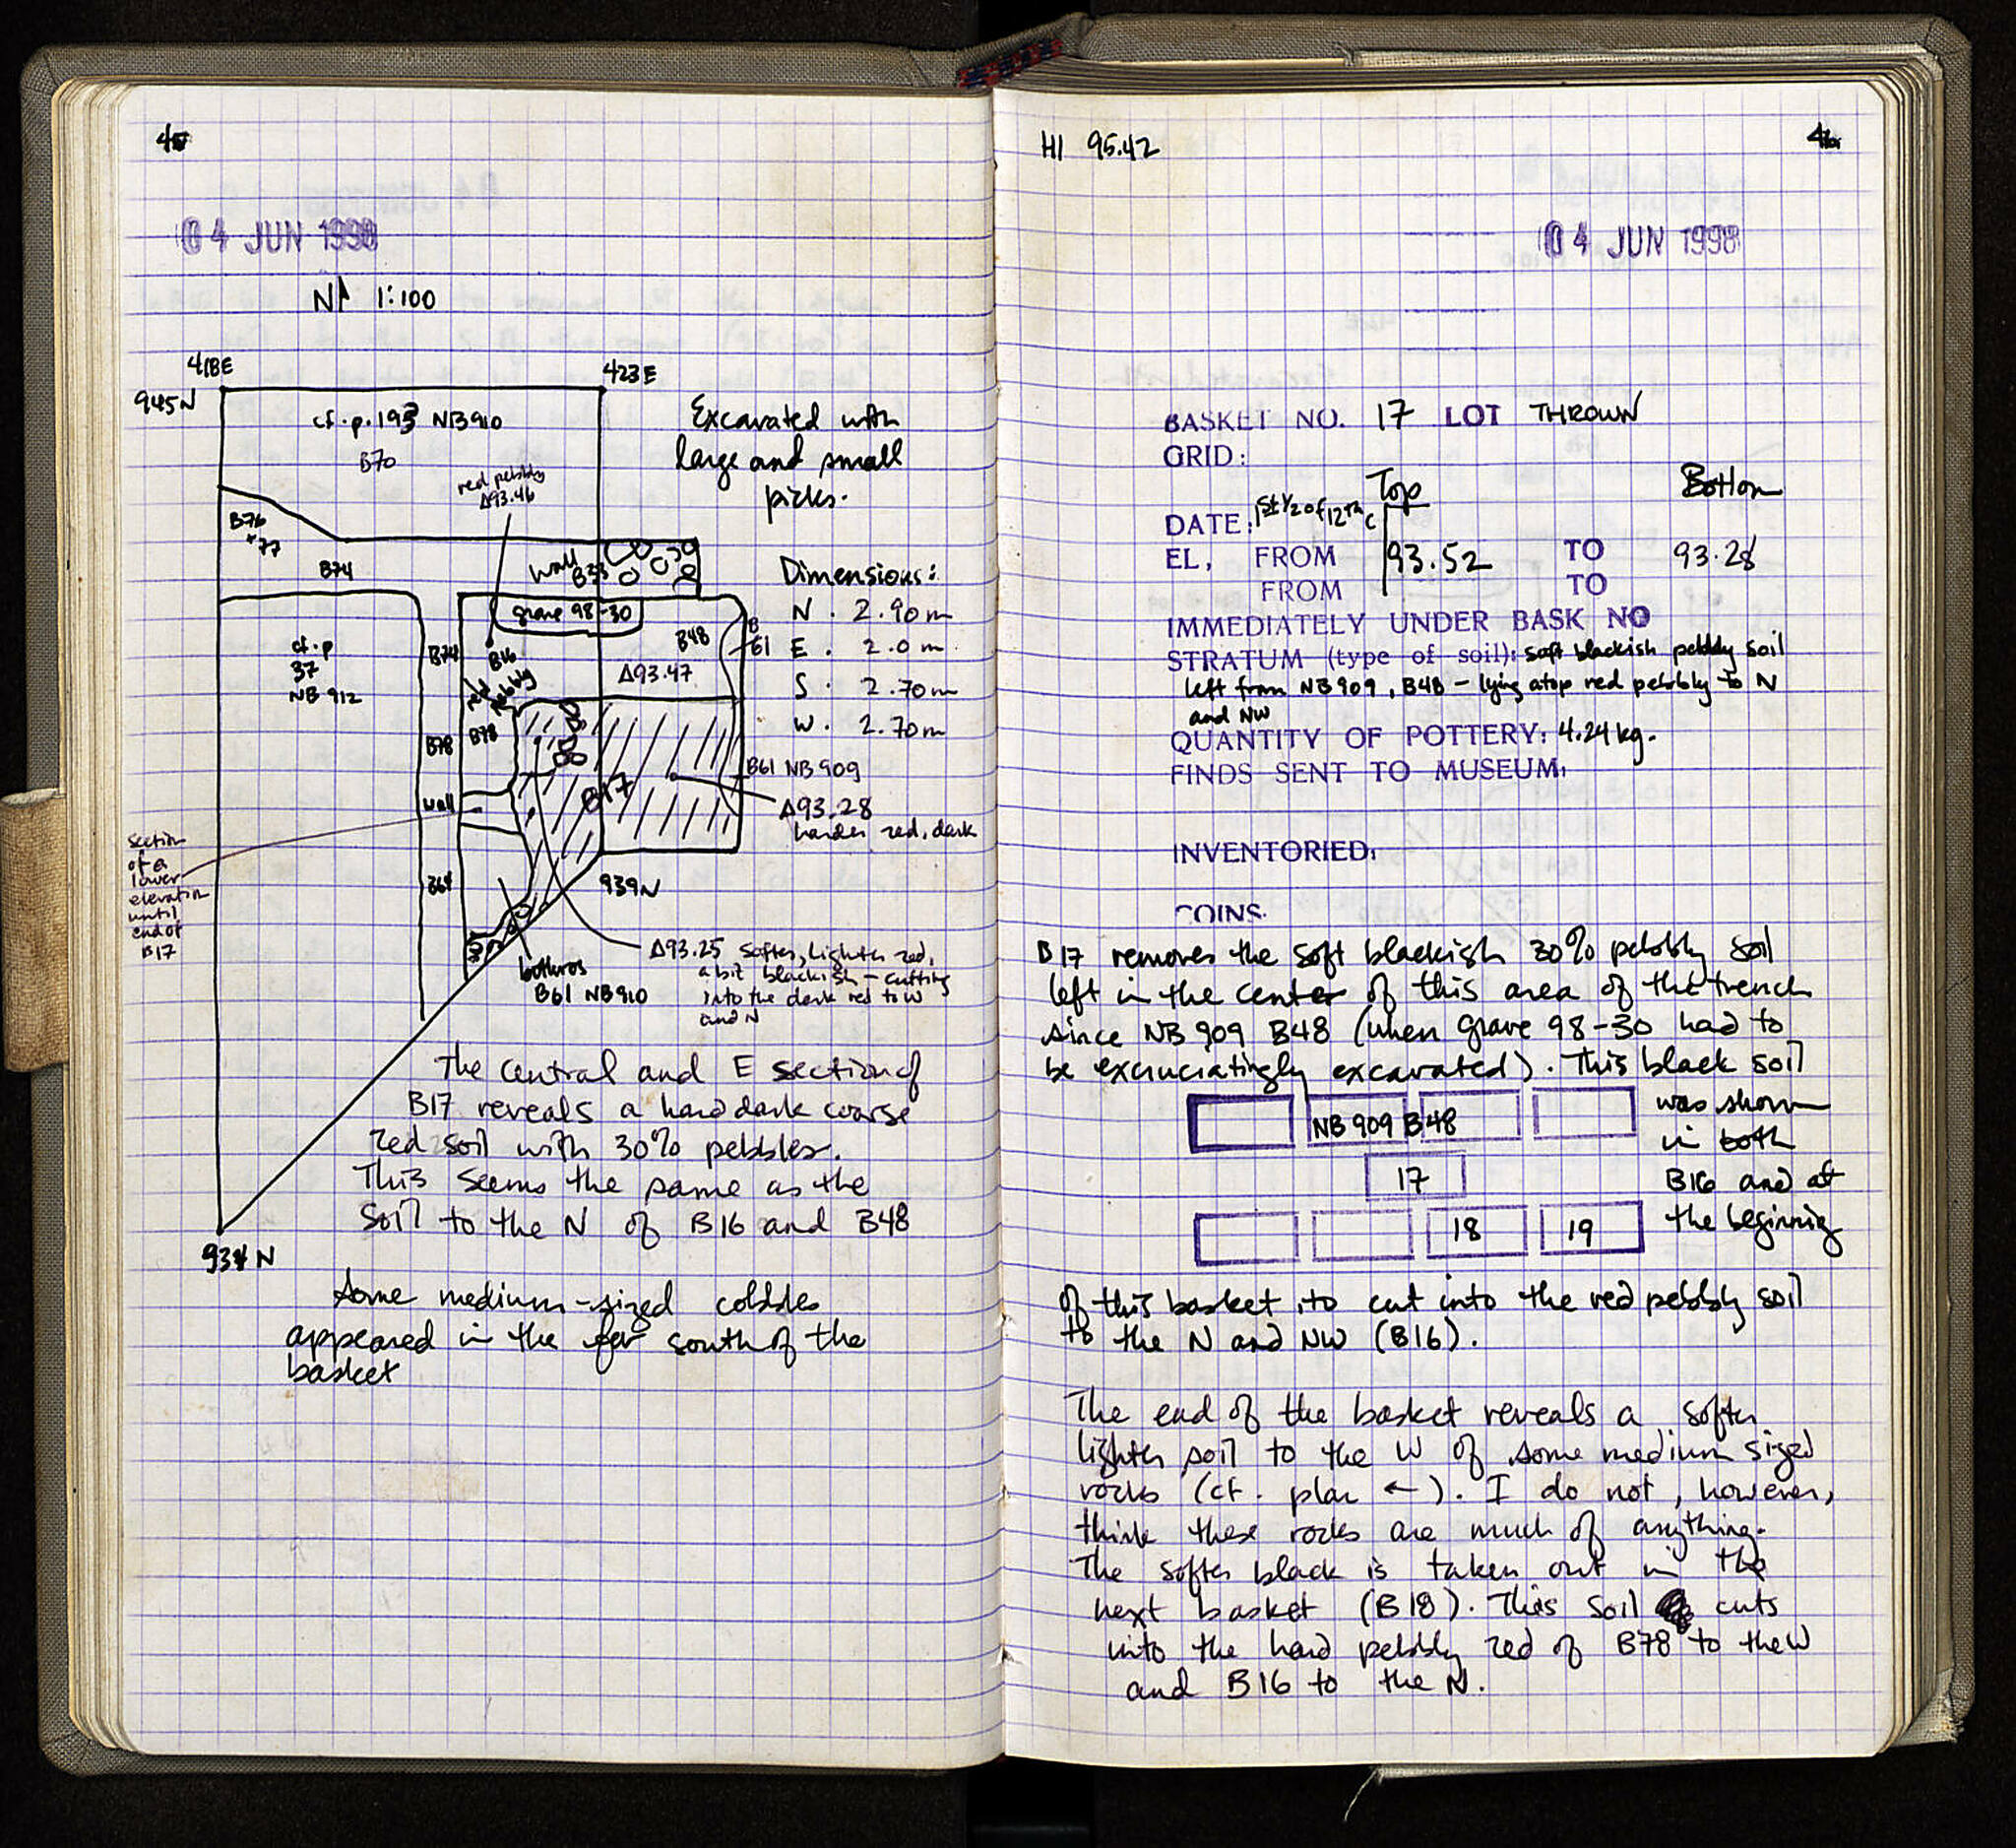 04 JUN 1998
N 1:100
418E
423E
945N
cf. p. 193 NB910
B70
red pebbly
Δ93.46
Excavated with
large and small
picks.
B76
+77
B74
wall
B33
grave 98-30
B48
B
61
Δ93.47
Dimensions:
N. 2.90m
E. 2.0m
S. 2.70m
W. 2.70m
cf. p
37
NB 912
B74
B16
red
pebbly
B78
B78
B17
B61 NB 909
Δ93.28
harder red, dark
wall
section
of a
lower
elevation
until
end of
B17
B64
939N
bothros
B61 NB910
Δ93.25 softer, lighter red,
a bit blackish - cutting
into the dark red to W
and N
934 N
The central and E section of
B17 reveals a hard dark coarse
red soil with 30% pebbles.
This seems the same as the
soil to the N of B16 and B48
Some medium-sized cobbles
appeared in the far south of the
basket
HI 95.42
04 JUN 1998
BASKET NO. 17 LOT THROWN
GRID:
Top Bottom
DATE: 1st 1/2 of 12th c
EL, FROM 93.52 TO 93.28
FROM TO
IMMEDIATELY UNDER BASK NO
STRATUM (type of soil): soft blackish pebbly soil
left from NB909, B48 - lying atop red pebbly to N
and NW
QUANTITY OF POTTERY: 4.24 kg.
FINDS SENT TO MUSEUM:
INVENTORIED:
COINS.
B17 removes the soft blackish 30% pebbly soil
left in the center of this area of the trench
since NB 909 B48 (when grave 98-30 had to
be excruciatingly excavated). This black soil
was shown
NB 909 B48
in both
17
B16 and at
18 19
the beginning
of this basket, to cut into the red pebbly soil
to the N and NW (B16).
The end of the basket reveals a softer
lighter soil to the W of some medium sized
rocks (cf. plan ←). I do not, however,
think these rocks are much of anything.
The softer black is taken out in the
next basket (B18). This soil cuts
into the hard pebbly red of B78 to the W
and B16 to the N.